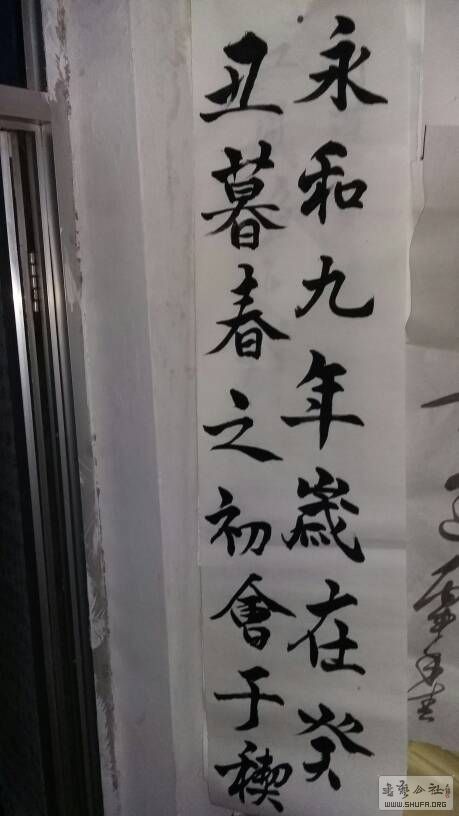 永和九年歲在癸
丑暮春之初會于稧
WWW.SHUFA.ORG